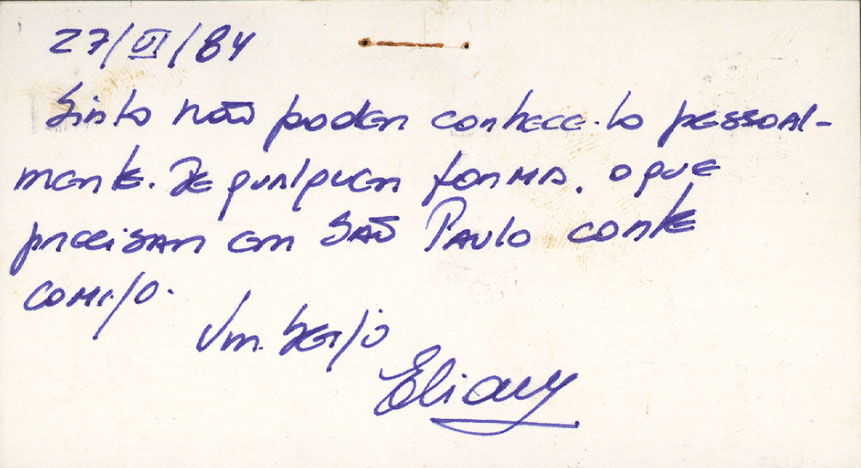 27/VI/84
Sinto não poder conhece-lo pessoal-
mente. De qualquer forma, o que
precisar em São Paulo conte
comigo.
Um beijo
Eliany